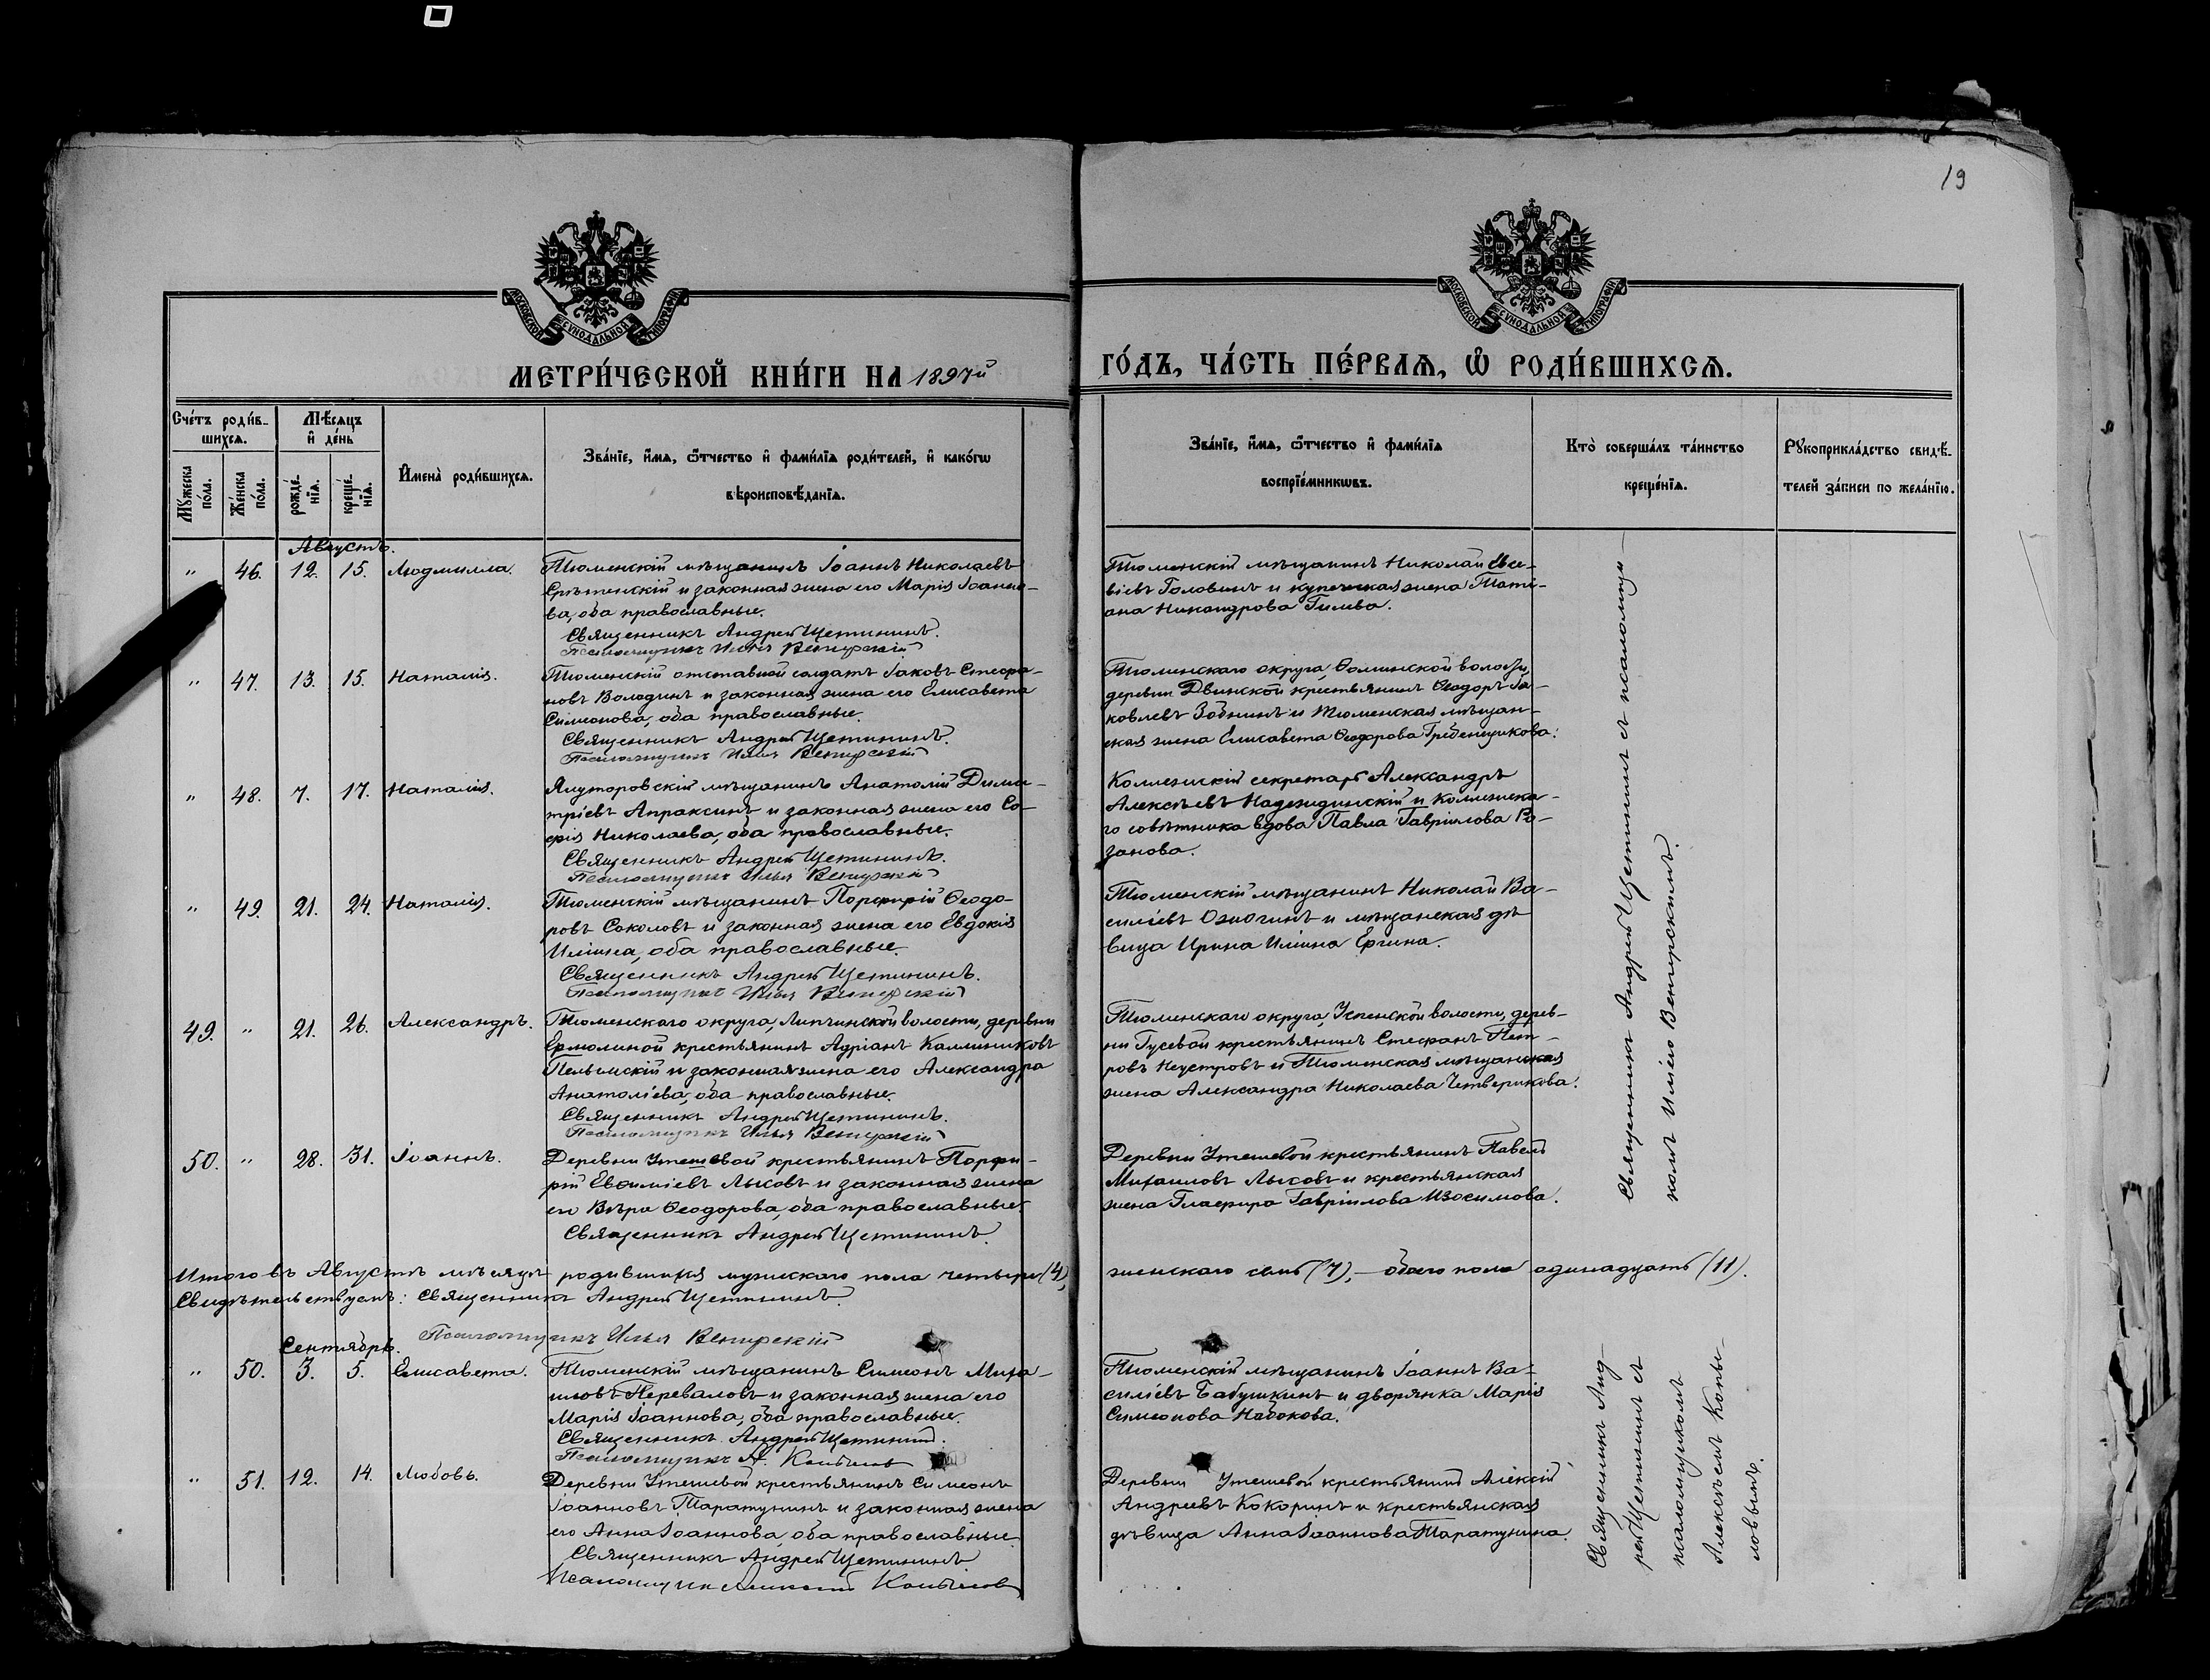 19
МОСКОВСКОЙ СѴНОДАЛЬНОЙ ТИПОГРАФІИ
МОСКОВСКОЙ СѴНОДАЛЬНОЙ ТИПОГРАФІИ
МЕТРИ́ЧЕСКОЙ КНИ́ГИ НА 1897й
ГО́ДЪ, ЧА́СТЬ ПЕ́РВАѦ, Ѡ РОДИ́ВШИХСѦ.
Сче́тъ роди́в-
шихсѧ.
Мѣ́сѧцъ
и҆ де́нь
Мꙋ́жеска
по́ла.
Же́нска
по́ла.
рожде́-
нїѧ.
креще́-
нїѧ.
И҆мена̀ роди́вшихсѧ.
Зва́нїе, и҆́мѧ, ѻ҆́тчество и҆ фами́лїѧ роди́телей, и҆ како́гѡ
вѣроисповѣ́данїѧ.
Зва́нїе, и҆́мѧ, ѻ҆́тчество и҆ фами́лїѧ
воспрїе́мникѡвъ.
Кто̀ соверша́лъ та́инство
креще́нїѧ.
Рꙋкоприкла́дство свидѣ́-
телей за́писи по жела́нїю.
Августъ.
" 46. 12. 15. Людмилла. Тюменскій мѣщанинъ Іоаннъ Николаевъ
Срѣтенскій и законная жена его Марія Іоанно-
ва, оба православные.
Священникъ Андрей Щетининъ.
Псаломщикъ Илья Венгерскій
Тюменскій мѣщанинъ Николай Евсе-
віевъ Головинъ и купеческая жена Тати-
ана Никандрова Гилева.
" 47. 13. 15. Наталія. Тюменскій отставной солдатъ Іаковъ Стефа-
новъ Володинъ и законная жена его Елисавета
Симеонова, оба православные.
Священникъ Андрей Щетининъ.
Псаломщикъ Илья Венгерскій
Тюменскаго округа, Ѳоминской волости,
деревни Двинской крестьянинъ Ѳеодоръ Іа-
ковлевъ Зобнинъ и Тюменская мѣщан-
ская жена Елисавета Ѳеодорова Гребенщикова.
" 48. 7. 17. Наталія. Ялуторовскій мѣщанинъ Анатолій Дими-
тріевъ Апраксинъ и законная жена его Со-
фія Николаева, оба православные.
Священникъ Андрей Щетининъ.
Псаломщикъ Илья Венгерскій
Коллежскій секретарь Александръ
Алексѣевъ Надеждинскій и коллежска-
го совѣтника вдова Павла Гавріилова Ро-
занова.
" 49. 21. 24. Наталія. Тюменскій мѣщанинъ Порфирій Ѳеодо-
ровъ Соколовъ и законная жена его Евдокія
Иліина, оба православные.
Священникъ Андрей Щетининъ.
Псаломщикъ Илья Венгерскій
Тюменскій мѣщанинъ Николай Ва-
силіевъ Ожогинъ и мѣщанская дѣ-
вица Ирина Иліина Ергина.
49. " 21. 26. Александръ. Тюменскаго округа, Липчинской волости, деревни
Ермолиной крестьянинъ Адріанъ Каллиниковъ
Пелымскій и законная жена его Александра
Анатоліева, оба православные.
Священникъ Андрей Щетининъ.
Псаломщикъ Илья Венгерскій
Тюменскаго округа, Успенской волости, дерев-
ни Гусевой крестьянинъ Стефанъ Пет-
ровъ Неустровъ и Тюменская мѣщанская
жена Александра Николаева Четверикова.
50. " 28. 31. Іоаннъ. Деревни Утешевой крестьянинъ Порфи-
рій Евѳиміевъ Лысовъ и законная жена
его Вѣра Ѳеодорова, оба православные.
Священникъ Андрей Щетининъ.
Деревни Утешевой крестьянинъ Павелъ
Михаиловъ Лысовъ и крестьянская
жена Глафира Гавріилова Изосимова.
Священникъ Андрей Щетининъ съ псаломщи-
комъ Иліею Венгерскимъ.
Итого въ Августѣ мѣсяцѣ родившихся мужескаго пола четыре (4),
женскаго семь (7), — обоего пола одинадцать (11).
Свидѣтельствуемъ: Священникъ Андрей Щетининъ.
Псаломщикъ Илья Венгерскій
Сентябрь.
" 50. 3. 5. Елисавета. Тюменскій мѣщанинъ Симеонъ Миха-
иловъ Переваловъ и законная жена его
Марія Іоаннова, оба православные.
Священникъ Андрей Щетининъ.
Псаломщикъ А. Копыловъ
Тюменскій мѣщанинъ Іоаннъ Ва-
силіевъ Бабушкинъ и дворянка Марія
Симеонова Набокова.
" 51. 12. 14. Любовь. Деревни Утешевой крестьянинъ Симеонъ
Іоанновъ Таратунинъ и законная жена
его Анна Іоаннова, оба православные.
Священникъ Андрей Щетининъ
Псаломщикъ Алексій Копыловъ
Деревни Утешевой крестьянинъ Алексій
Андреевъ Кокоринъ и крестьянская
дѣвица Анна Іоаннова Таратунина.
Священникъ Анд-
рей Щетининъ съ
псаломщикомъ
Алексѣемъ Копы-
ловымъ.